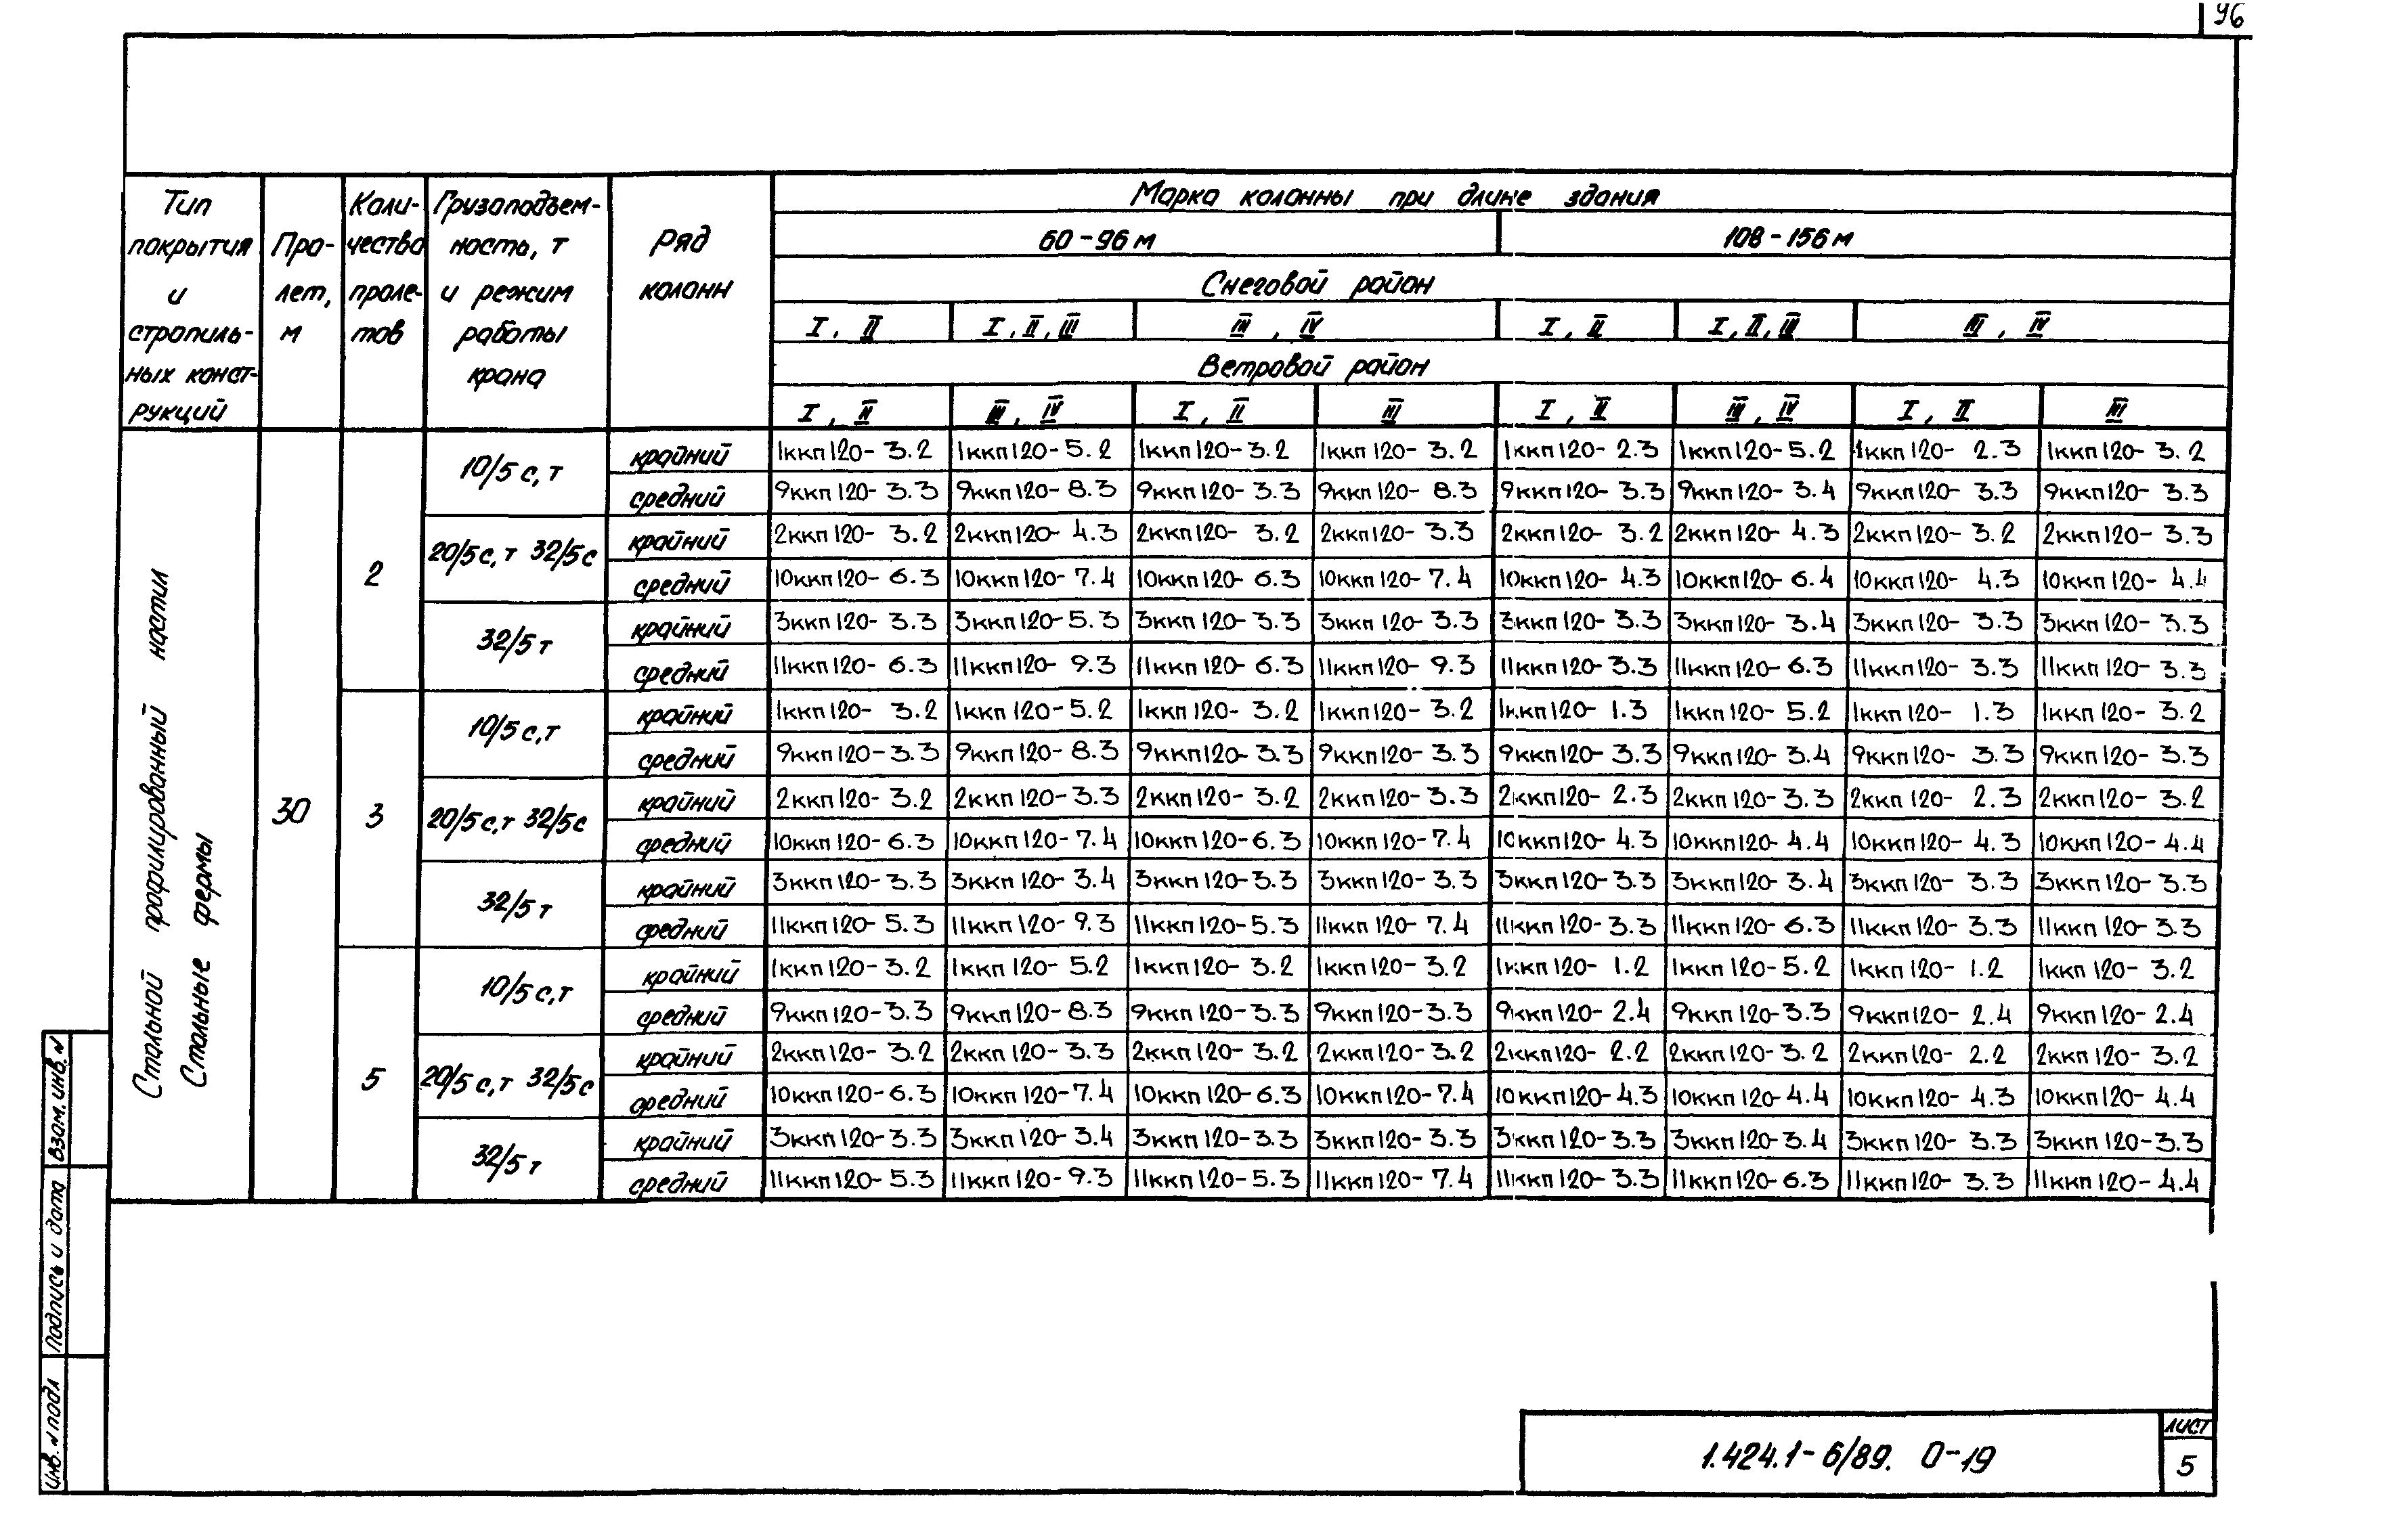 96
Тип покрытия и стропиль- ных конст- рукций
Про- лет, м
Коли- чество проле- тов
Грузоподъем- ность, т и режим работы крана
Ряд колонн
Марка колонны при длине здания
60-96 м 108-156 м
Снеговой район
I, II I, II, III III, IV I, II I, II, III III, IV
Ветровой район
I, II III, IV I, II III I, II III, IV I, II III
Стальной профилированный настил
Стальные фермы
30
2
10/5 с, т
крайний 1ккп120-3.2 1ккп120-5.2 1ккп120-3.2 1ккп120-3.2 1ккп120-2.3 1ккп120-5.2 1ккп120-2.3 1ккп120-3.2
средний 9ккп120-3.3 9ккп120-8.3 9ккп120-3.3 9ккп120-8.3 9ккп120-3.3 9ккп120-3.4 9ккп120-3.3 9ккп120-3.3
20/5с, т 32/5с
крайний 2ккп120-3.2 2ккп120-4.3 2ккп120-3.2 2ккп120-3.3 2ккп120-3.2 2ккп120-4.3 2ккп120-3.2 2ккп120-3.3
средний 10ккп120-6.3 10ккп120-7.4 10ккп120-6.3 10ккп120-7.4 10ккп120-4.3 10ккп120-6.4 10ккп120-4.3 10ккп120-4.4
32/5 т
крайний 3ккп120-3.3 3ккп120-5.3 3ккп120-3.3 3ккп120-3.3 3ккп120-3.3 3ккп120-3.4 3ккп120-3.3 3ккп120-3.3
средний 11ккп120-6.3 11ккп120-9.3 11ккп120-6.3 11ккп120-9.3 11ккп120-3.3 11ккп120-6.3 11ккп120-3.3 11ккп120-3.3
3
10/5 с,т
крайний 1ккп120-3.2 1ккп120-5.2 1ккп120-3.2 1ккп120-3.2 1ккп120-1.3 1ккп120-5.2 1ккп120-1.3 1ккп120-3.2
средний 9ккп120-3.3 9ккп120-8.3 9ккп120-3.3 9ккп120-3.3 9ккп120-3.3 9ккп120-3.4 9ккп120-3.3 9ккп120-3.3
20/5 с,т 32/5с
крайний 2ккп120-3.2 2ккп120-3.3 2ккп120-3.2 2ккп120-3.3 2ккп120-2.3 2ккп120-3.3 2ккп120-2.3 2ккп120-3.2
средний 10ккп120-6.3 10ккп120-7.4 10ккп120-6.3 10ккп120-7.4 10ккп120-4.3 10ккп120-4.4 10ккп120-4.3 10ккп120-4.4
32/5 т
крайний 3ккп120-3.3 3ккп120-3.4 3ккп120-3.3 3ккп120-3.3 3ккп120-3.3 3ккп120-3.4 3ккп120-3.3 3ккп120-3.3
средний 11ккп120-5.3 11ккп120-9.3 11ккп120-5.3 11ккп120-7.4 11ккп120-3.3 11ккп120-6.3 11ккп120-3.3 11ккп120-3.3
5
10/5 с,т
крайний 1ккп120-3.2 1ккп120-5.2 1ккп120-3.2 1ккп120-3.2 1ккп120-1.2 1ккп120-5.2 1ккп120-1.2 1ккп120-3.2
средний 9ккп120-3.3 9ккп120-8.3 9ккп120-3.3 9ккп120-3.3 9ккп120-2.4 9ккп120-3.3 9ккп120-2.4 9ккп120-2.4
20/5 с,т 32/5с
крайний 2ккп120-3.2 2ккп120-3.3 2ккп120-3.2 2ккп120-3.2 2ккп120-2.2 2ккп120-3.2 2ккп120-2.2 2ккп120-3.2
средний 10ккп120-6.3 10ккп120-7.4 10ккп120-6.3 10ккп120-7.4 10ккп120-4.3 10ккп120-4.4 10ккп120-4.3 10ккп120-4.4
32/5 т
крайний 3ккп120-3.3 3ккп120-3.4 3ккп120-3.3 3ккп120-3.3 3ккп120-3.3 3ккп120-3.4 3ккп120-3.3 3ккп120-3.3
средний 11ккп120-5.3 11ккп120-9.3 11ккп120-5.3 11ккп120-7.4 11ккп120-3.3 11ккп120-6.3 11ккп120-3.3 11ккп120-4.4
Взам. инв. N
Подпись и дата
Инв. N подл
1.424.1-6/89. 0-19
лист
5